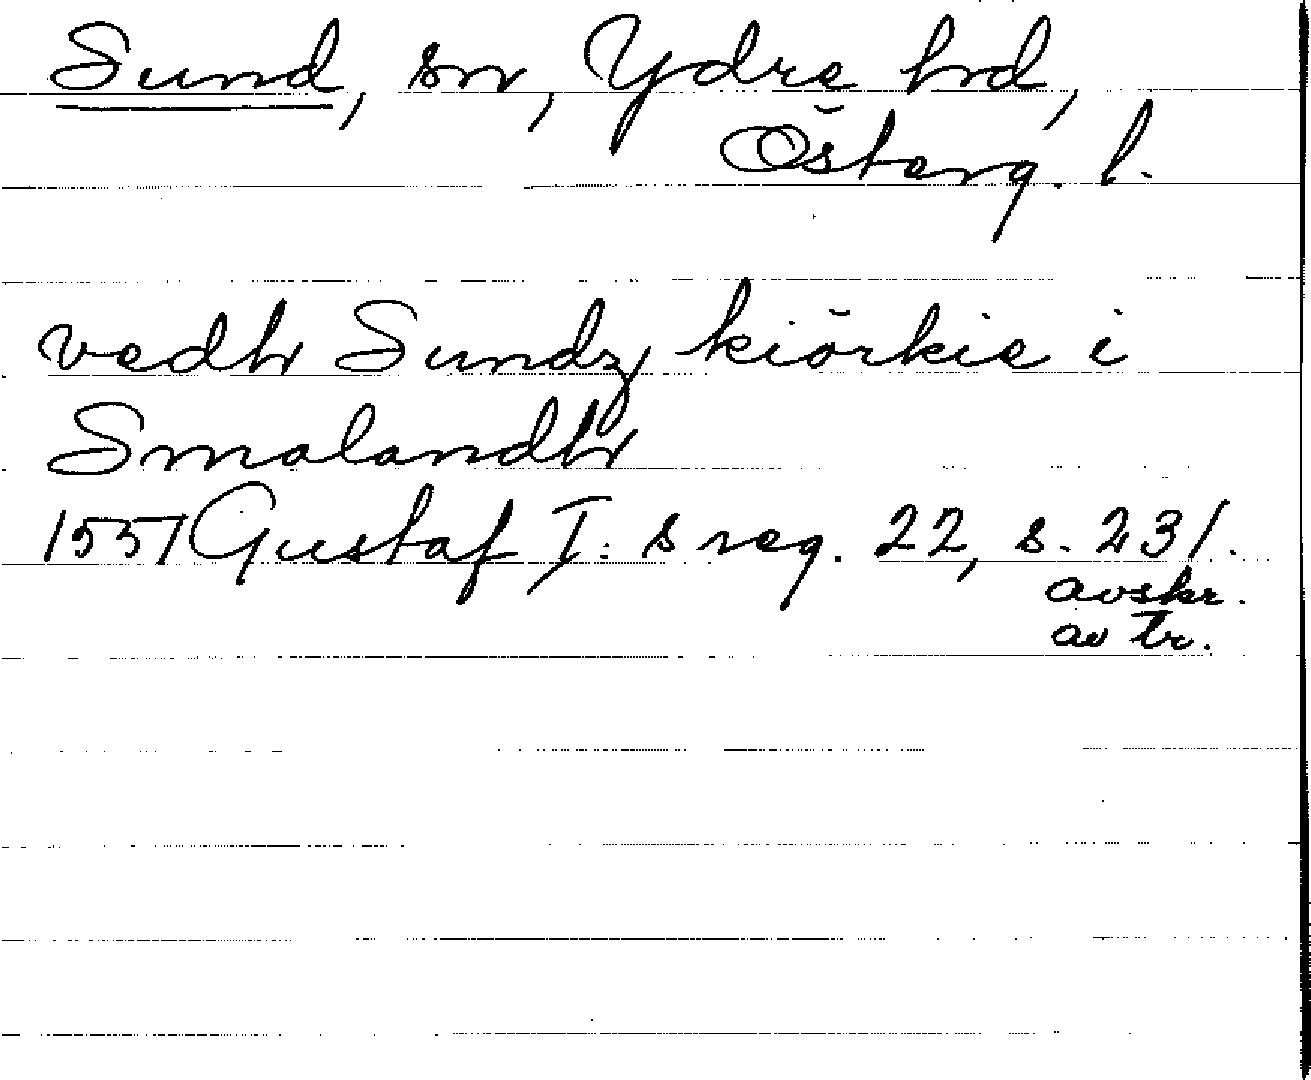 Sund, sn, Ydre hd,
Österg. l.
vedh Sundz kiörkie i
Smalandh
1557 Gustaf I:s reg. 22, s. 231.
avskr.
av tr.